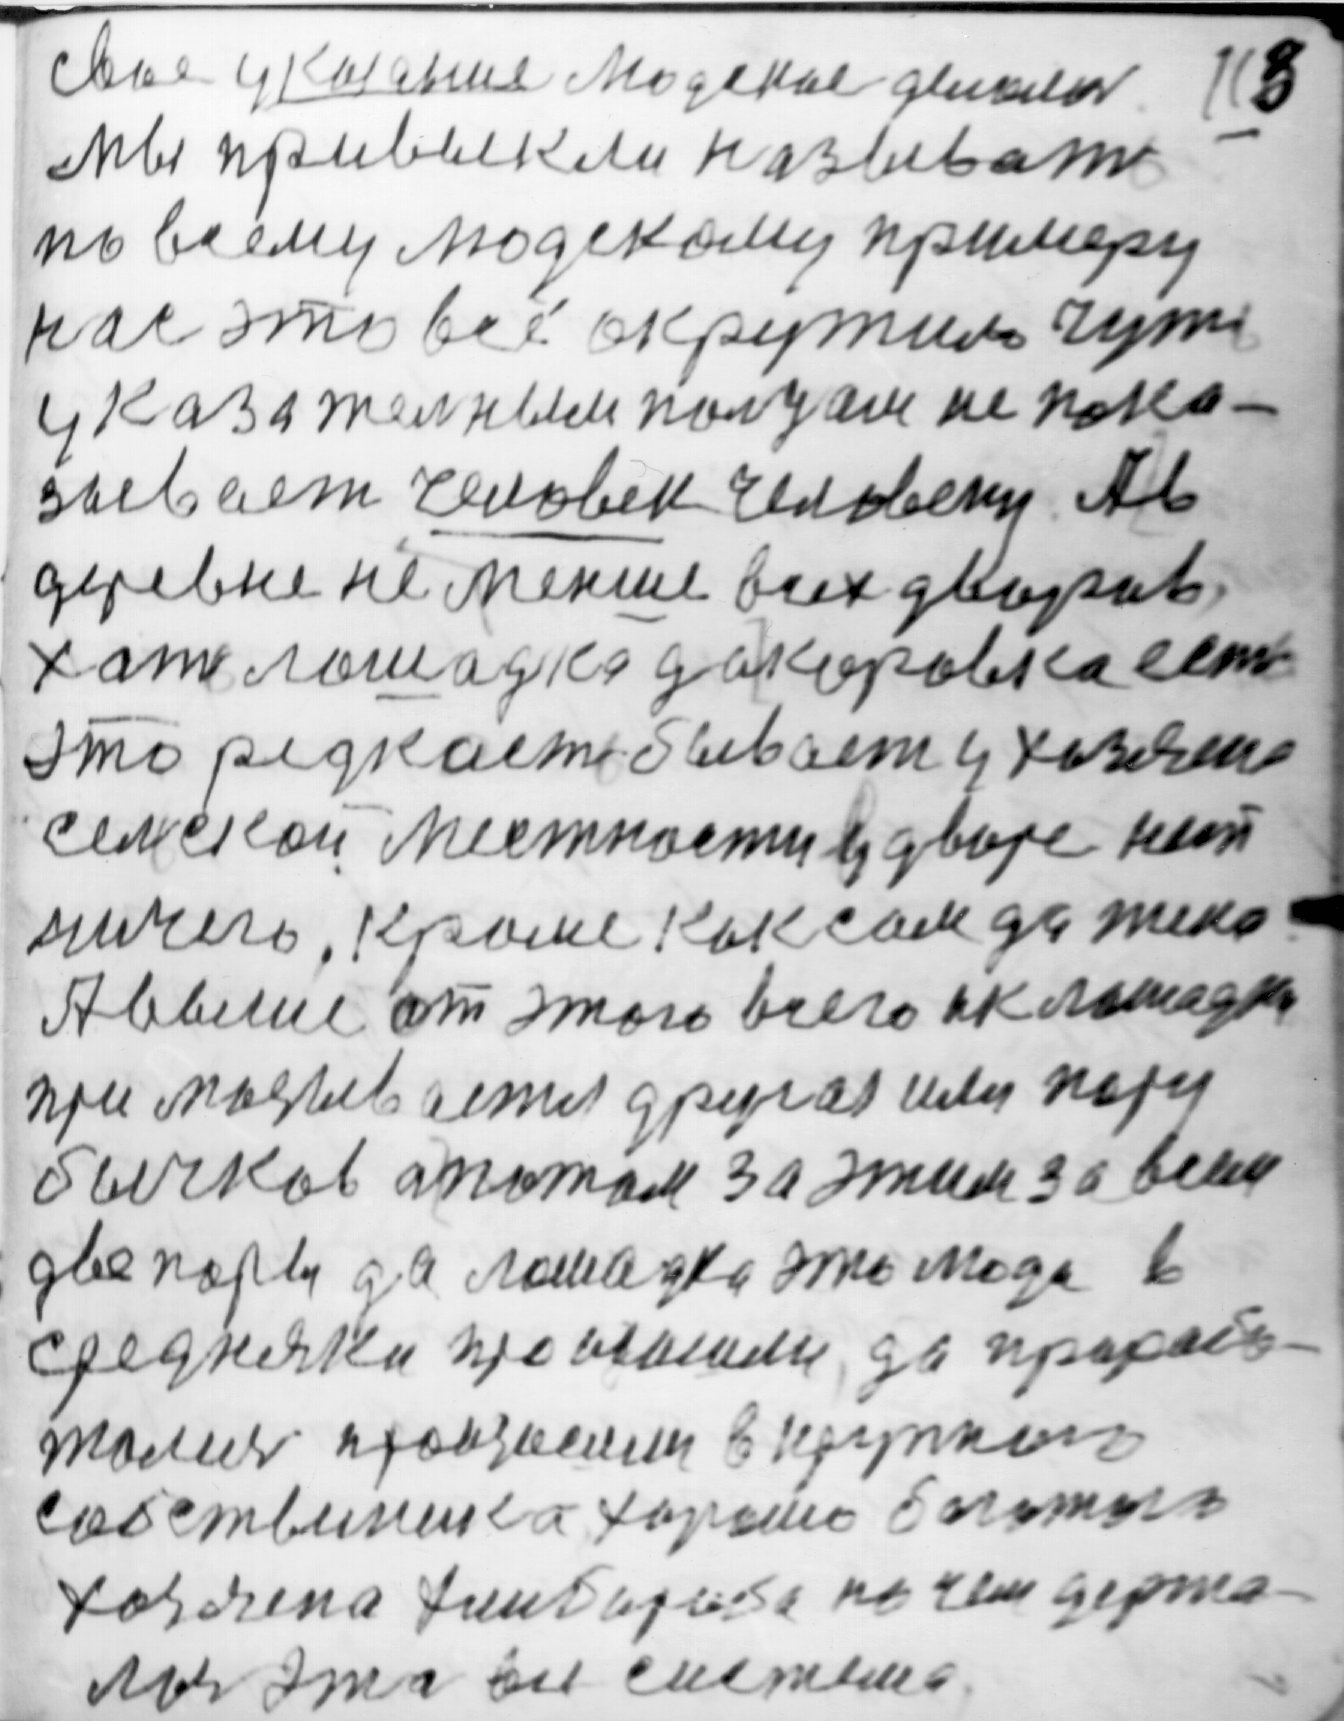 свое указание людское делалось 118
мы привыкли называть
по всему людскому примеру
нас это всё окружило чуть
указателным палцам не пока-
зывает человек человеку. А в
деревне не менше всех дворов,
хать лошадка да коровка есть
это редкасть бывает у хозяена
селской местности у дворе нет
ничего, кроме как сам да жена.
А выше от этого всего як лошадки
примазывается другая или пару
бычков а потом за этим за всем
две пары да лошадка это люда в
средняки произошли, да прарабо-
тались произошли в крупного
собственника хорошо богатого
хозяена хлибороба на чем держа-
лась эта вся система.